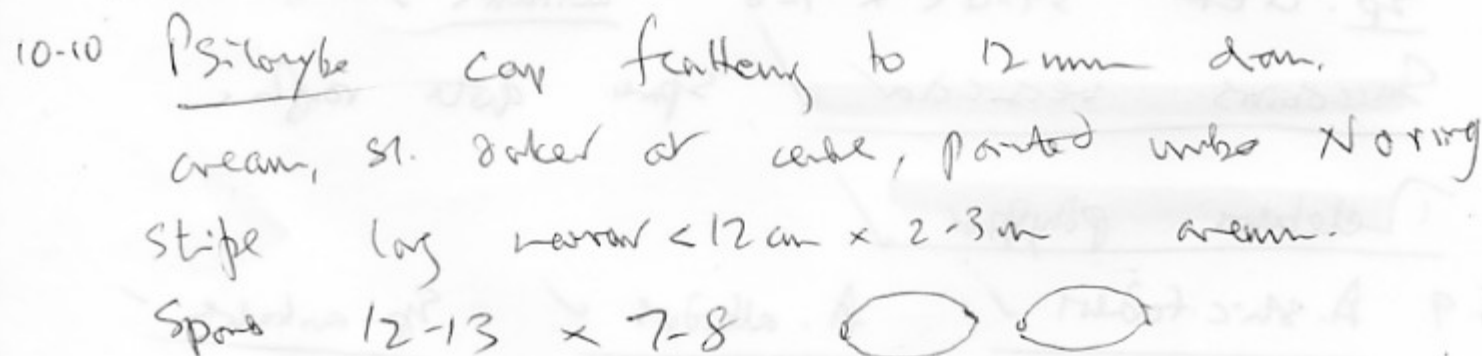 10-10 Psilocybe cap flattening to 12 mm diam.
cream, sl. darker at centre, pointed umbo No ring
stipe long narrow < 12 cm × 2-3 m cream.
Spores 12-13 × 7-8